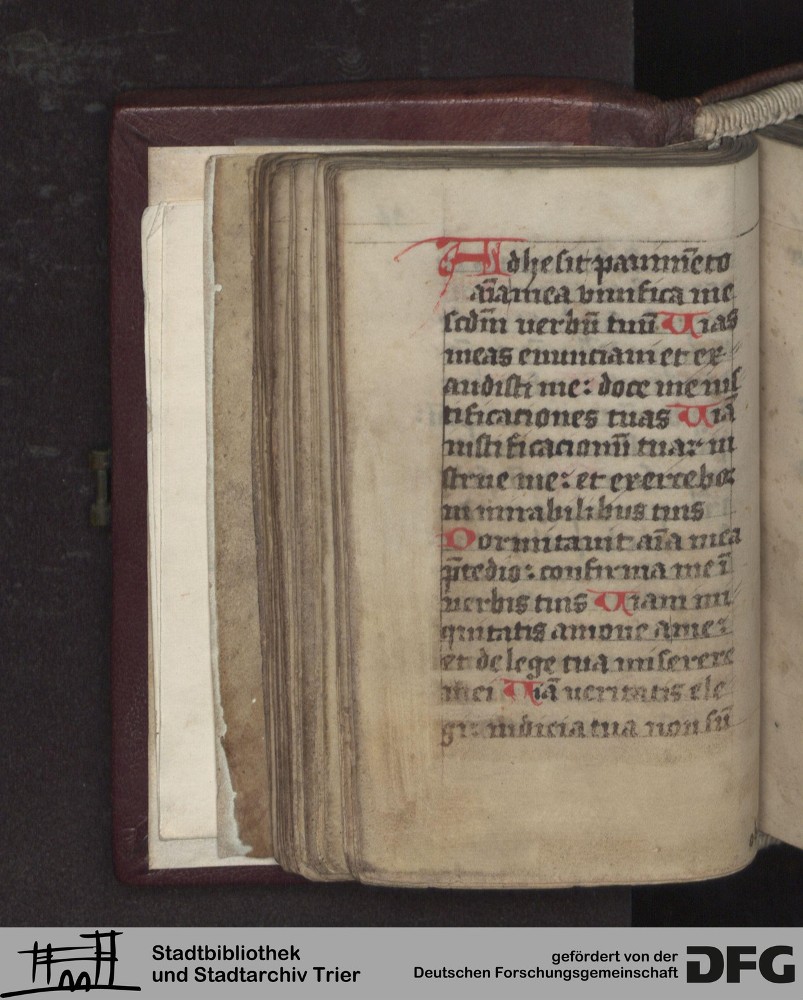 Adhesit pauim̄eto
aīa mea viuifica me
scd̄m uerbū tuū Uias
meas enunciaui et ex
audisti me: doce me ius
tificationes tuas Uiā
iustificacionū tuaꝝ in
strue me: et exercebor
in mirabilibus tuis
Dormitauit aīa mea
p̄ tedio: confirma me ī
uerbis tuis Uiam ini
quitatis amoue a me:
et de lege tua miserere
mei Uiā ueritatis ele
gi: iudicia tua non sū
Stadtbibliothek
und Stadtarchiv Trier
gefördert von der
Deutschen Forschungsgemeinschaft
DFG